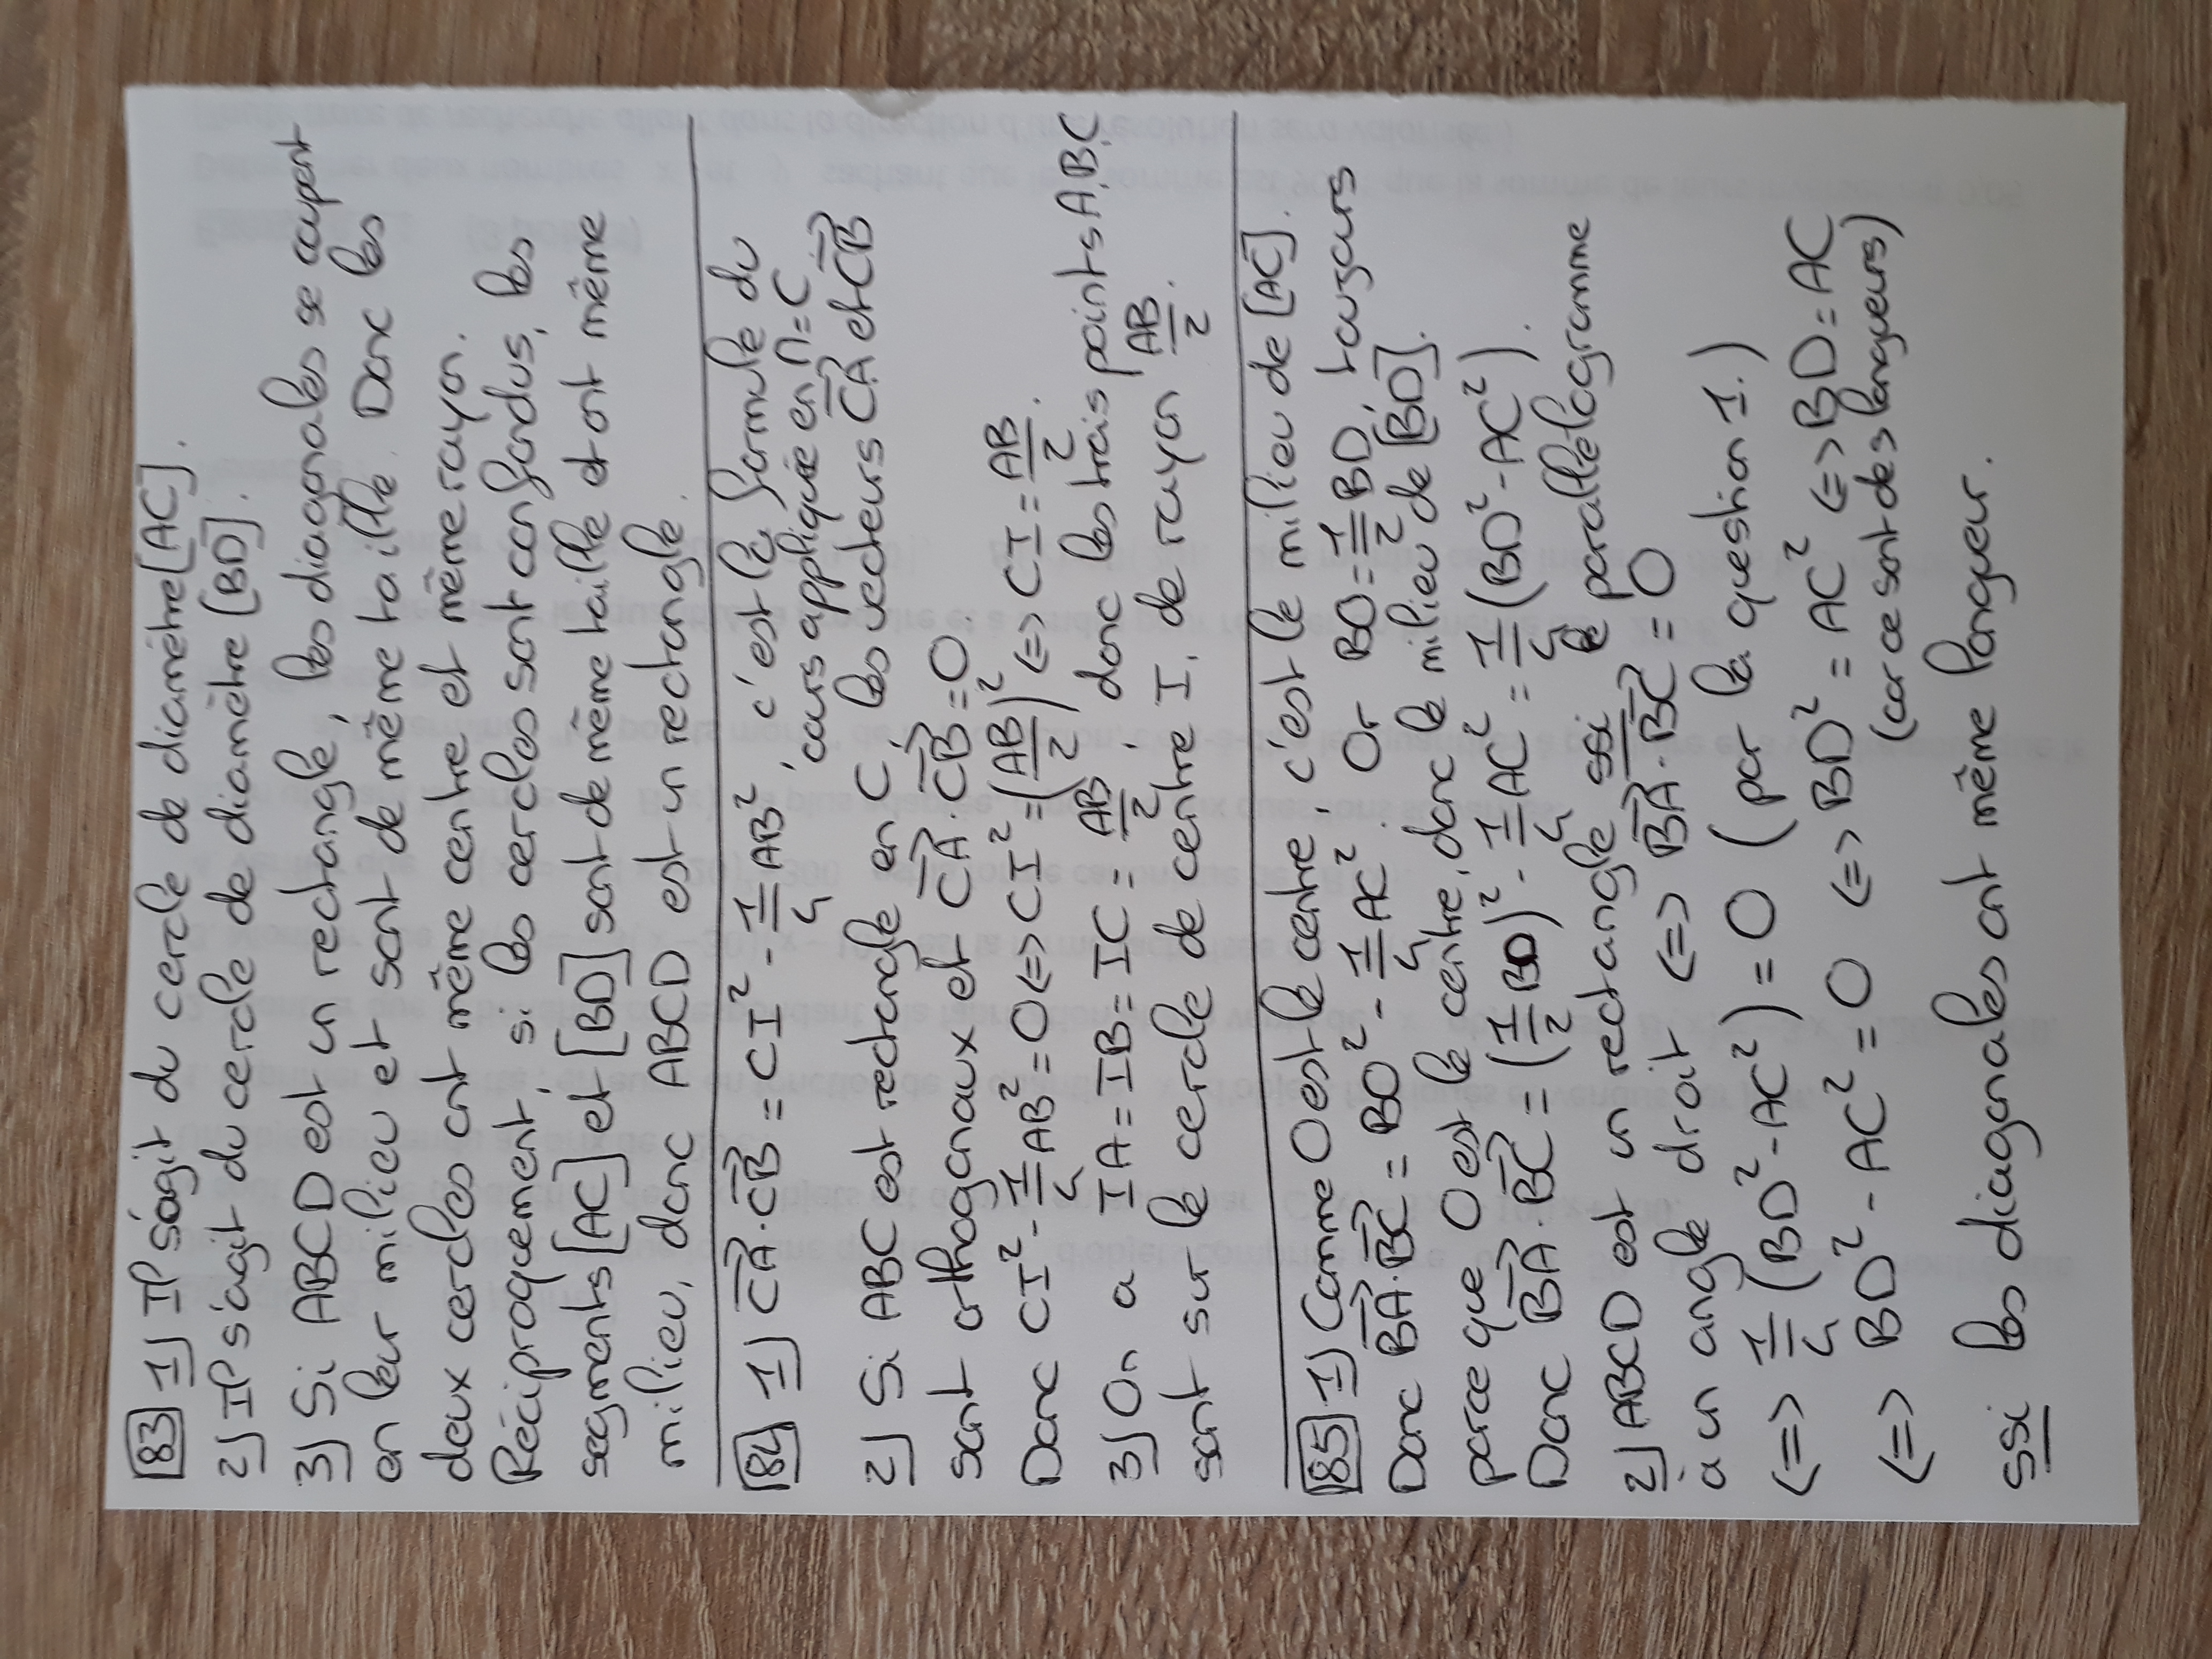 83 1) Il s'agit du cercle de diamètre [AC].
2) Il s'agit du cercle de diamètre [BD].
3) Si ABCD est un rectangle, les diagonales se coupent
en leur milieu et sont de même taille. Donc les
deux cercles ont même centre et même rayon.
Réciproquement, si les cercles sont confondus, les
segments [AC] et [BD] sont de même taille et ont même
milieu, donc ABCD est un rectangle.
84 1) $\overrightarrow{CA}\cdot\overrightarrow{CB} = CI^2 - \frac{1}{4}AB^2$, c'est la formule du
cours appliquée en M=C.
2) Si ABC est rectangle en C, les vecteurs $\overrightarrow{CA}$ et $\overrightarrow{CB}$
sont orthogonaux et $\overrightarrow{CA}\cdot\overrightarrow{CB} = 0$.
Donc $CI^2 - \frac{1}{4}AB^2 = 0 \Leftrightarrow CI^2 = \left(\frac{AB}{2}\right)^2 \Leftrightarrow CI = \frac{AB}{2}$.
3) On a $IA = IB = IC = \frac{AB}{2}$, donc les trois points A,B,C
sont sur le cercle de centre I, de rayon $\frac{AB}{2}$.
85 1) Comme O est le centre, c'est le milieu de [AC].
Donc $\overrightarrow{BA}\cdot\overrightarrow{BC} = BO^2 - \frac{1}{4}AC^2$. Or $BO = \frac{1}{2}BD$, toujours
parce que O est le centre, donc le milieu de [BD].
Donc $\overrightarrow{BA}\cdot\overrightarrow{BC} = \left(\frac{1}{2}BD\right)^2 - \frac{1}{4}AC^2 = \frac{1}{4}(BD^2 - AC^2)$.
2) ABCD est un rectangle ssi le parallélogramme
à un angle droit $\Leftrightarrow \overrightarrow{BA}\cdot\overrightarrow{BC} = 0$
$\Leftrightarrow \frac{1}{4}(BD^2 - AC^2) = 0$ (par la question 1.)
$\Leftrightarrow BD^2 - AC^2 = 0 \Leftrightarrow BD^2 = AC^2 \Leftrightarrow BD = AC$
(car ce sont des longueurs)
ssi les diagonales ont même longueur.